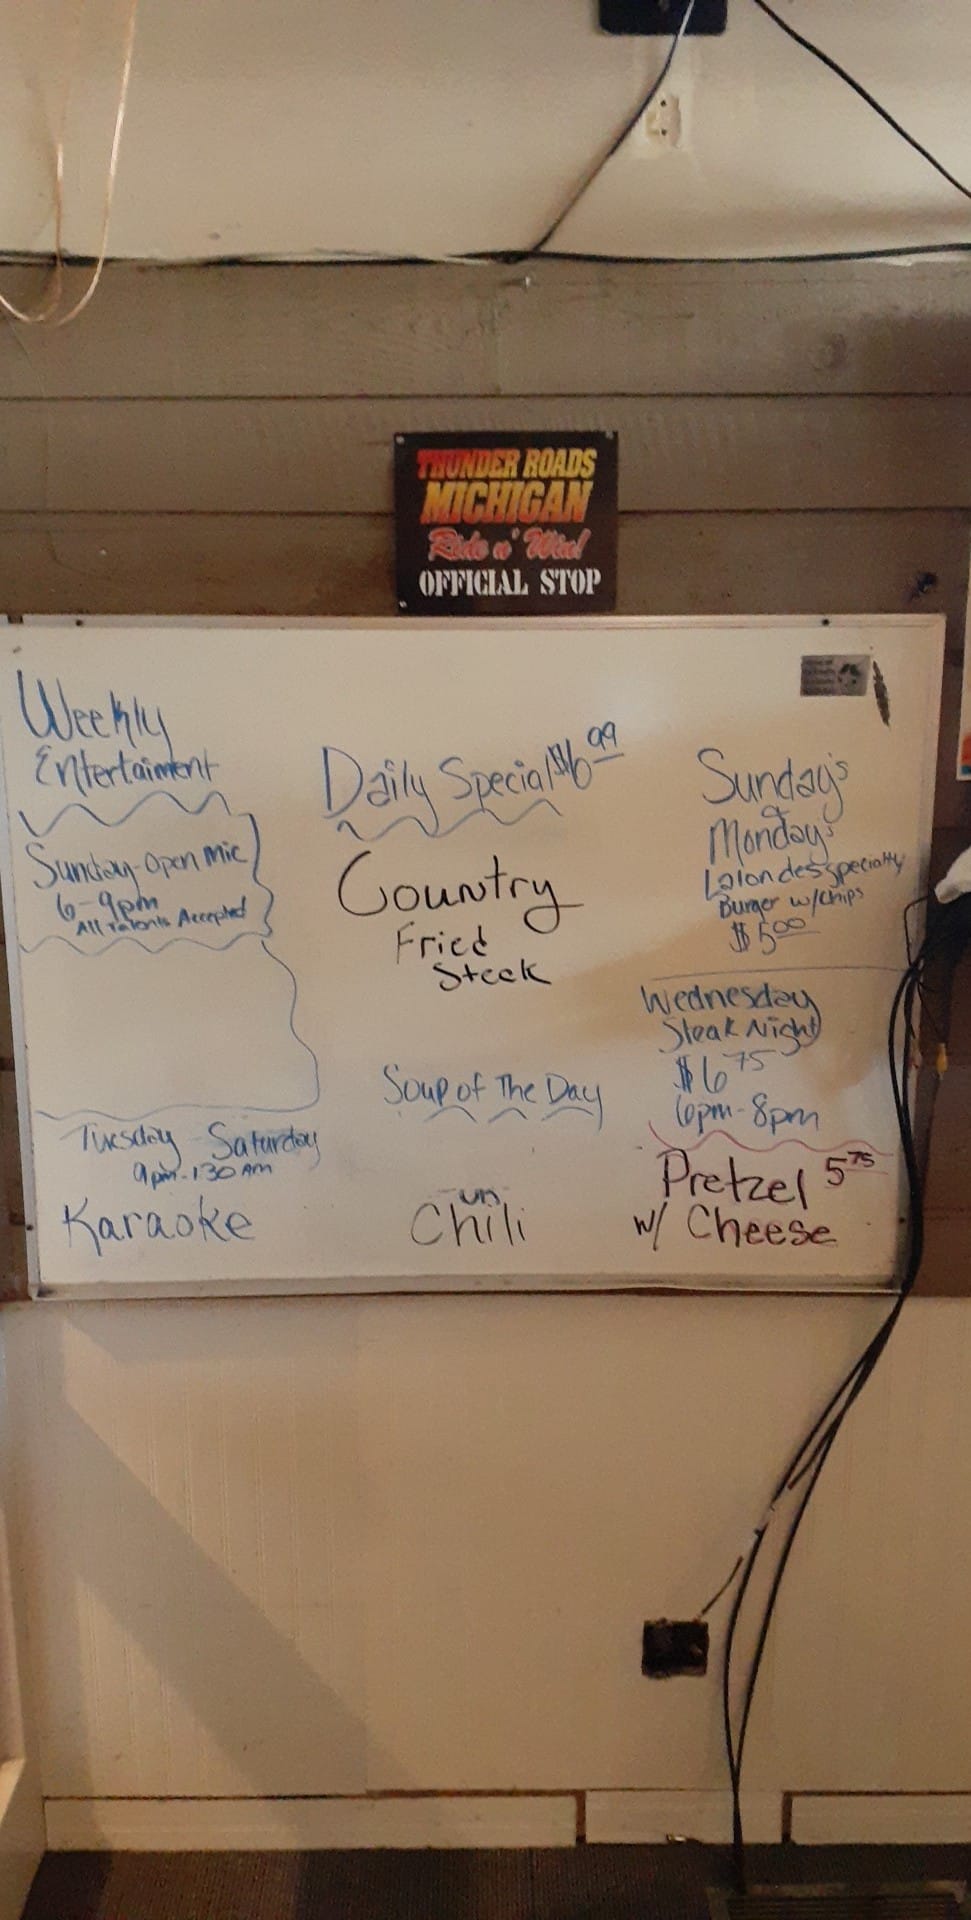 THUNDER ROADS
MICHIGAN
Ride n' Win!
OFFICIAL STOP
Weekly
Entertaiment
Sunday-Open Mic
6-9pm
All Talents Accepted
Tuesday - Saturday
9pm-1:30 AM
Karaoke
Daily Special $6.99
Country
Fried
Steak
Soup of The Day
Chili
Sunday's
&
Monday's
Lalondes specialty
Burger w/chips
$5.00
Wednesday
Steak Night
$6.75
6pm-8pm
Pretzel 5.75
w/ Cheese